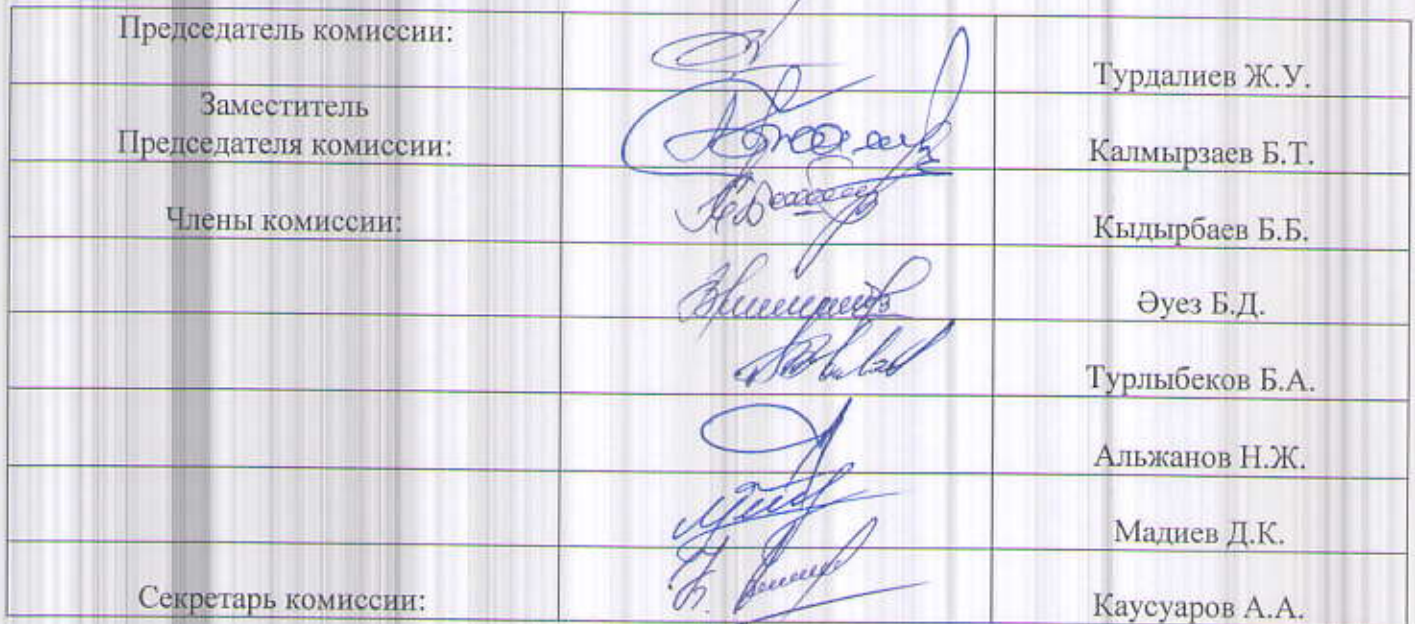 Председатель комиссии:
Турдалиев Ж.У.
Заместитель
Председателя комиссии:
Калмырзаев Б.Т.
Члены комиссии:
Кыдырбаев Б.Б.
Әуез Б.Д.
Турлыбеков Б.А.
Альжанов Н.Ж.
Мадиев Д.К.
Секретарь комиссии:
Каусуаров А.А.